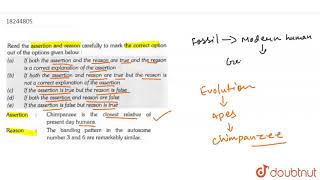 18244805
Read the assertion and reason carefully to mark the correct option
out of the options given below :
(a) If both the assertion and the reason are true and the reason
is a correct explanation of the assertion
(b) If both the assertion and reason are true but the reason is
not a correct explanation of the assertion
(c) If the assertion is true but the reason is false
(d) If both the assertion and reason are false
(e) If the assertion is false but reason is true
Assertion : Chimpanzee is the closest relative of
present day humans.
Reason : The banding pattern in the autosome
number 3 and 6 are remarkably similar.
Fossil → Modern human
Evolution
↓
apes
↓
chimpanzee
doubtnut